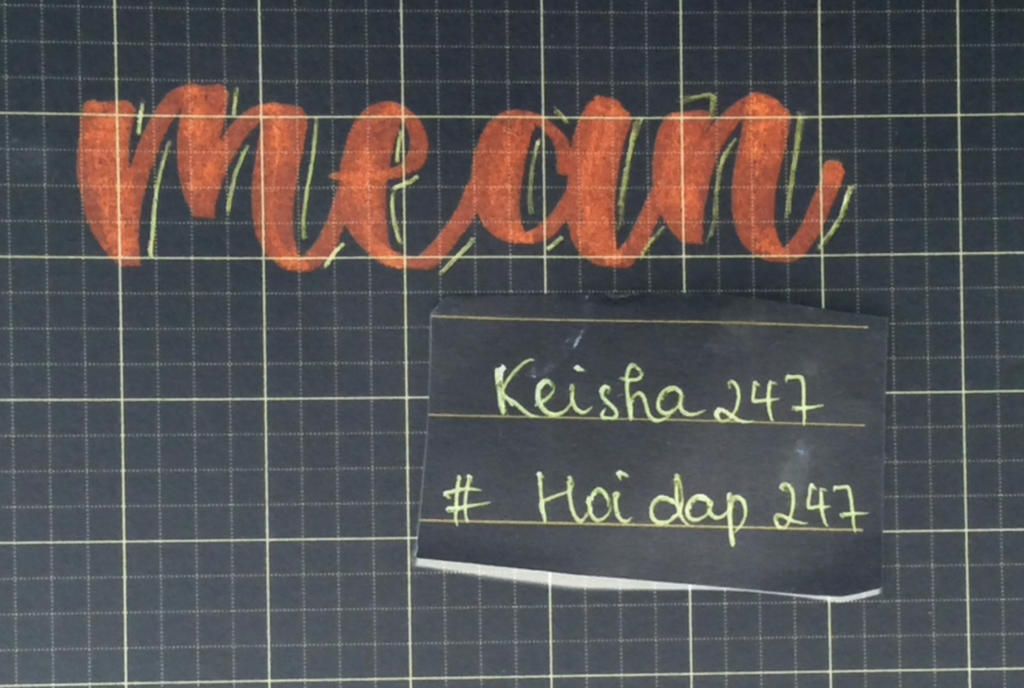 mean
Keisha 247
# Hoi dap 247